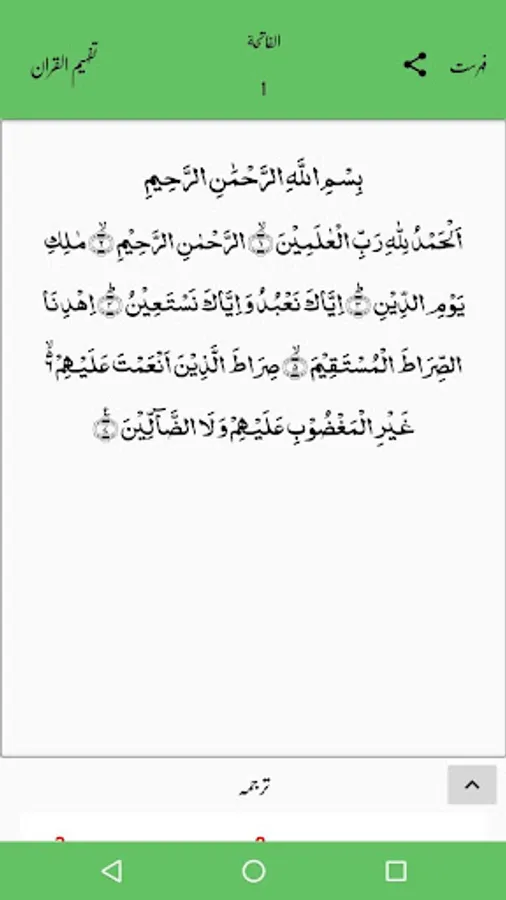 الفاتحة
تفہیم القرآن
فہرست
1
بِسْمِ اللَّهِ الرَّحْمَٰنِ الرَّحِيمِ
اَلْحَمْدُ لِلّٰهِ رَبِّ الْعٰلَمِیْنَۙ۝۱ الرَّحْمٰنِ الرَّحِیْمِۙ۝۲ مٰلِكِ
یَوْمِ الدِّیْنِؕ۝۳ اِیَّاكَ نَعْبُدُ وَ اِیَّاكَ نَسْتَعِیْنُؕ۝۴ اِهْدِنَا
الصِّرَاطَ الْمُسْتَقِیْمَۙ۝۵ صِرَاطَ الَّذِیْنَ اَنْعَمْتَ عَلَیْهِمْ۬ۙ۶
غَیْرِ الْمَغْضُوْبِ عَلَیْهِمْ وَ لَا الضَّآلِّیْنَ۠
ترجمہ